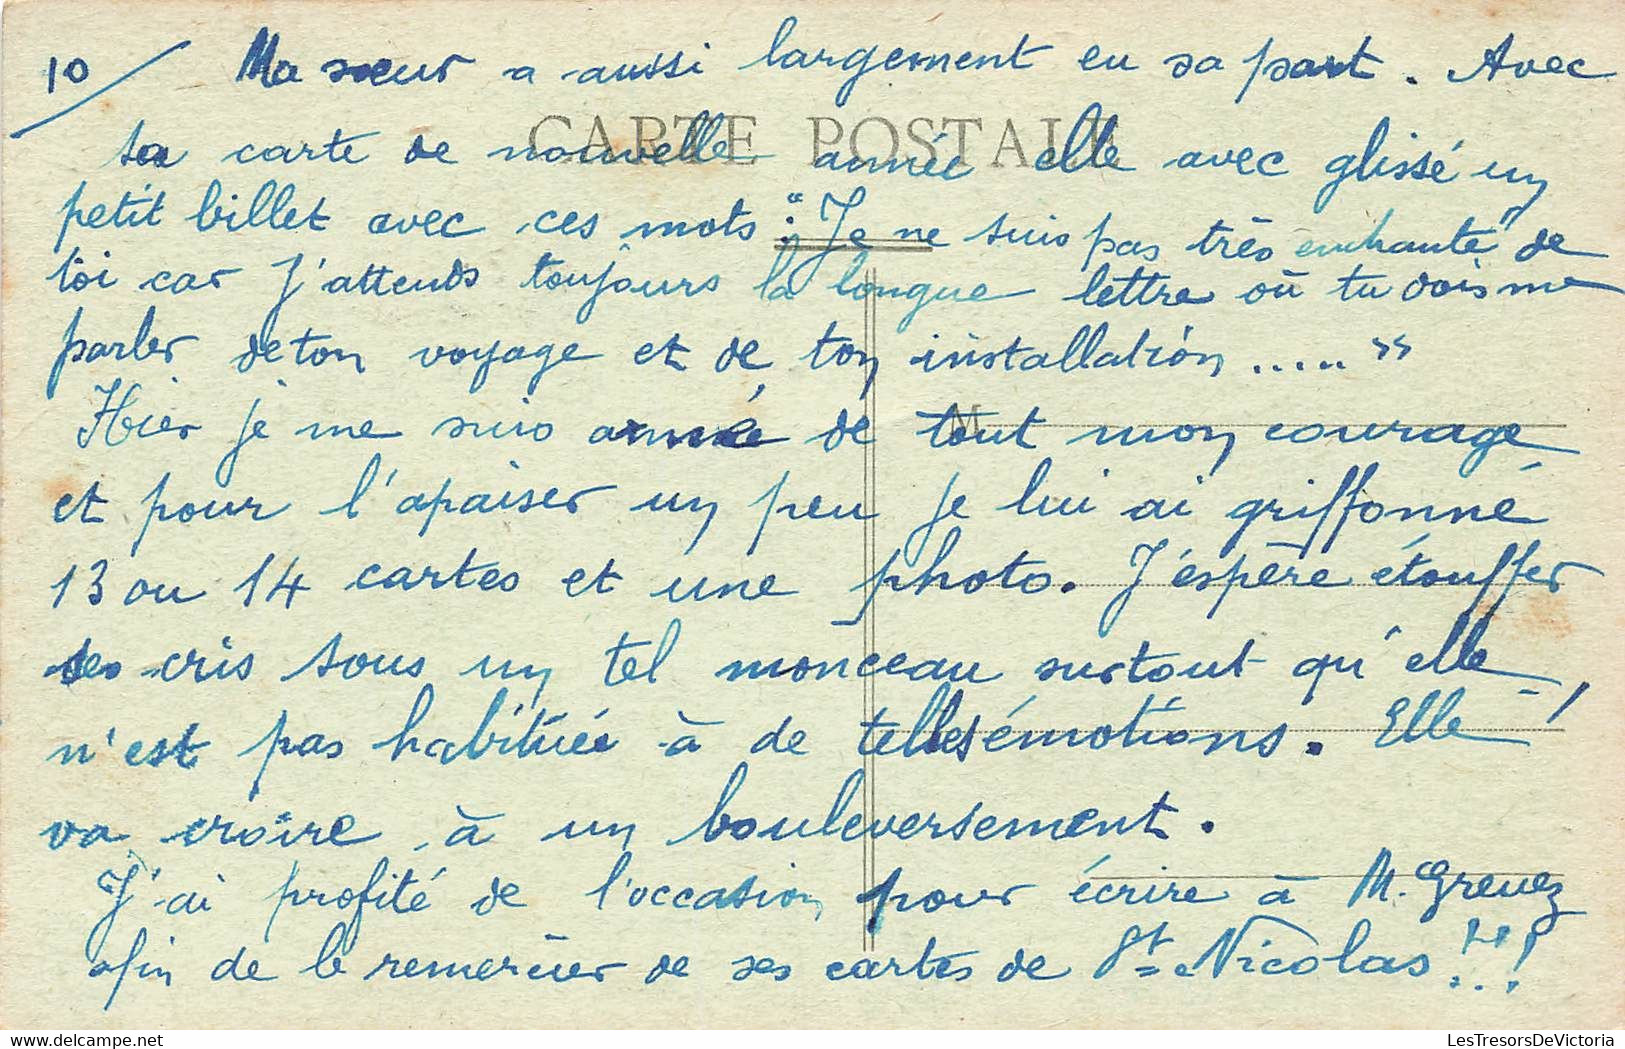 10/ Ma sœur a aussi largement eu sa part. Avec
CARTE POSTALE
sa carte de nouvelle année elle avec glissé un
petit billet avec ces mots : "Je ne suis pas très enchanté de
toi car j'attends toujours la longue lettre où tu dois me
parler de ton voyage et de ton installation ....."
Hier je me suis armée de tout mon courage
M
et pour l'apaiser un peu je lui ai griffonné
13 ou 14 cartes et une photo. J'espère étouffer
ses cris sous un tel monceau surtout qu'elle
n'est pas habituée à de telles émotions. Elle
va croire à un bouleversement.
J'ai profité de l'occasion pour écrire à M. Greuez
afin de le remercier de ses cartes de St Nicolas !!!
LesTresorsDeVictoria